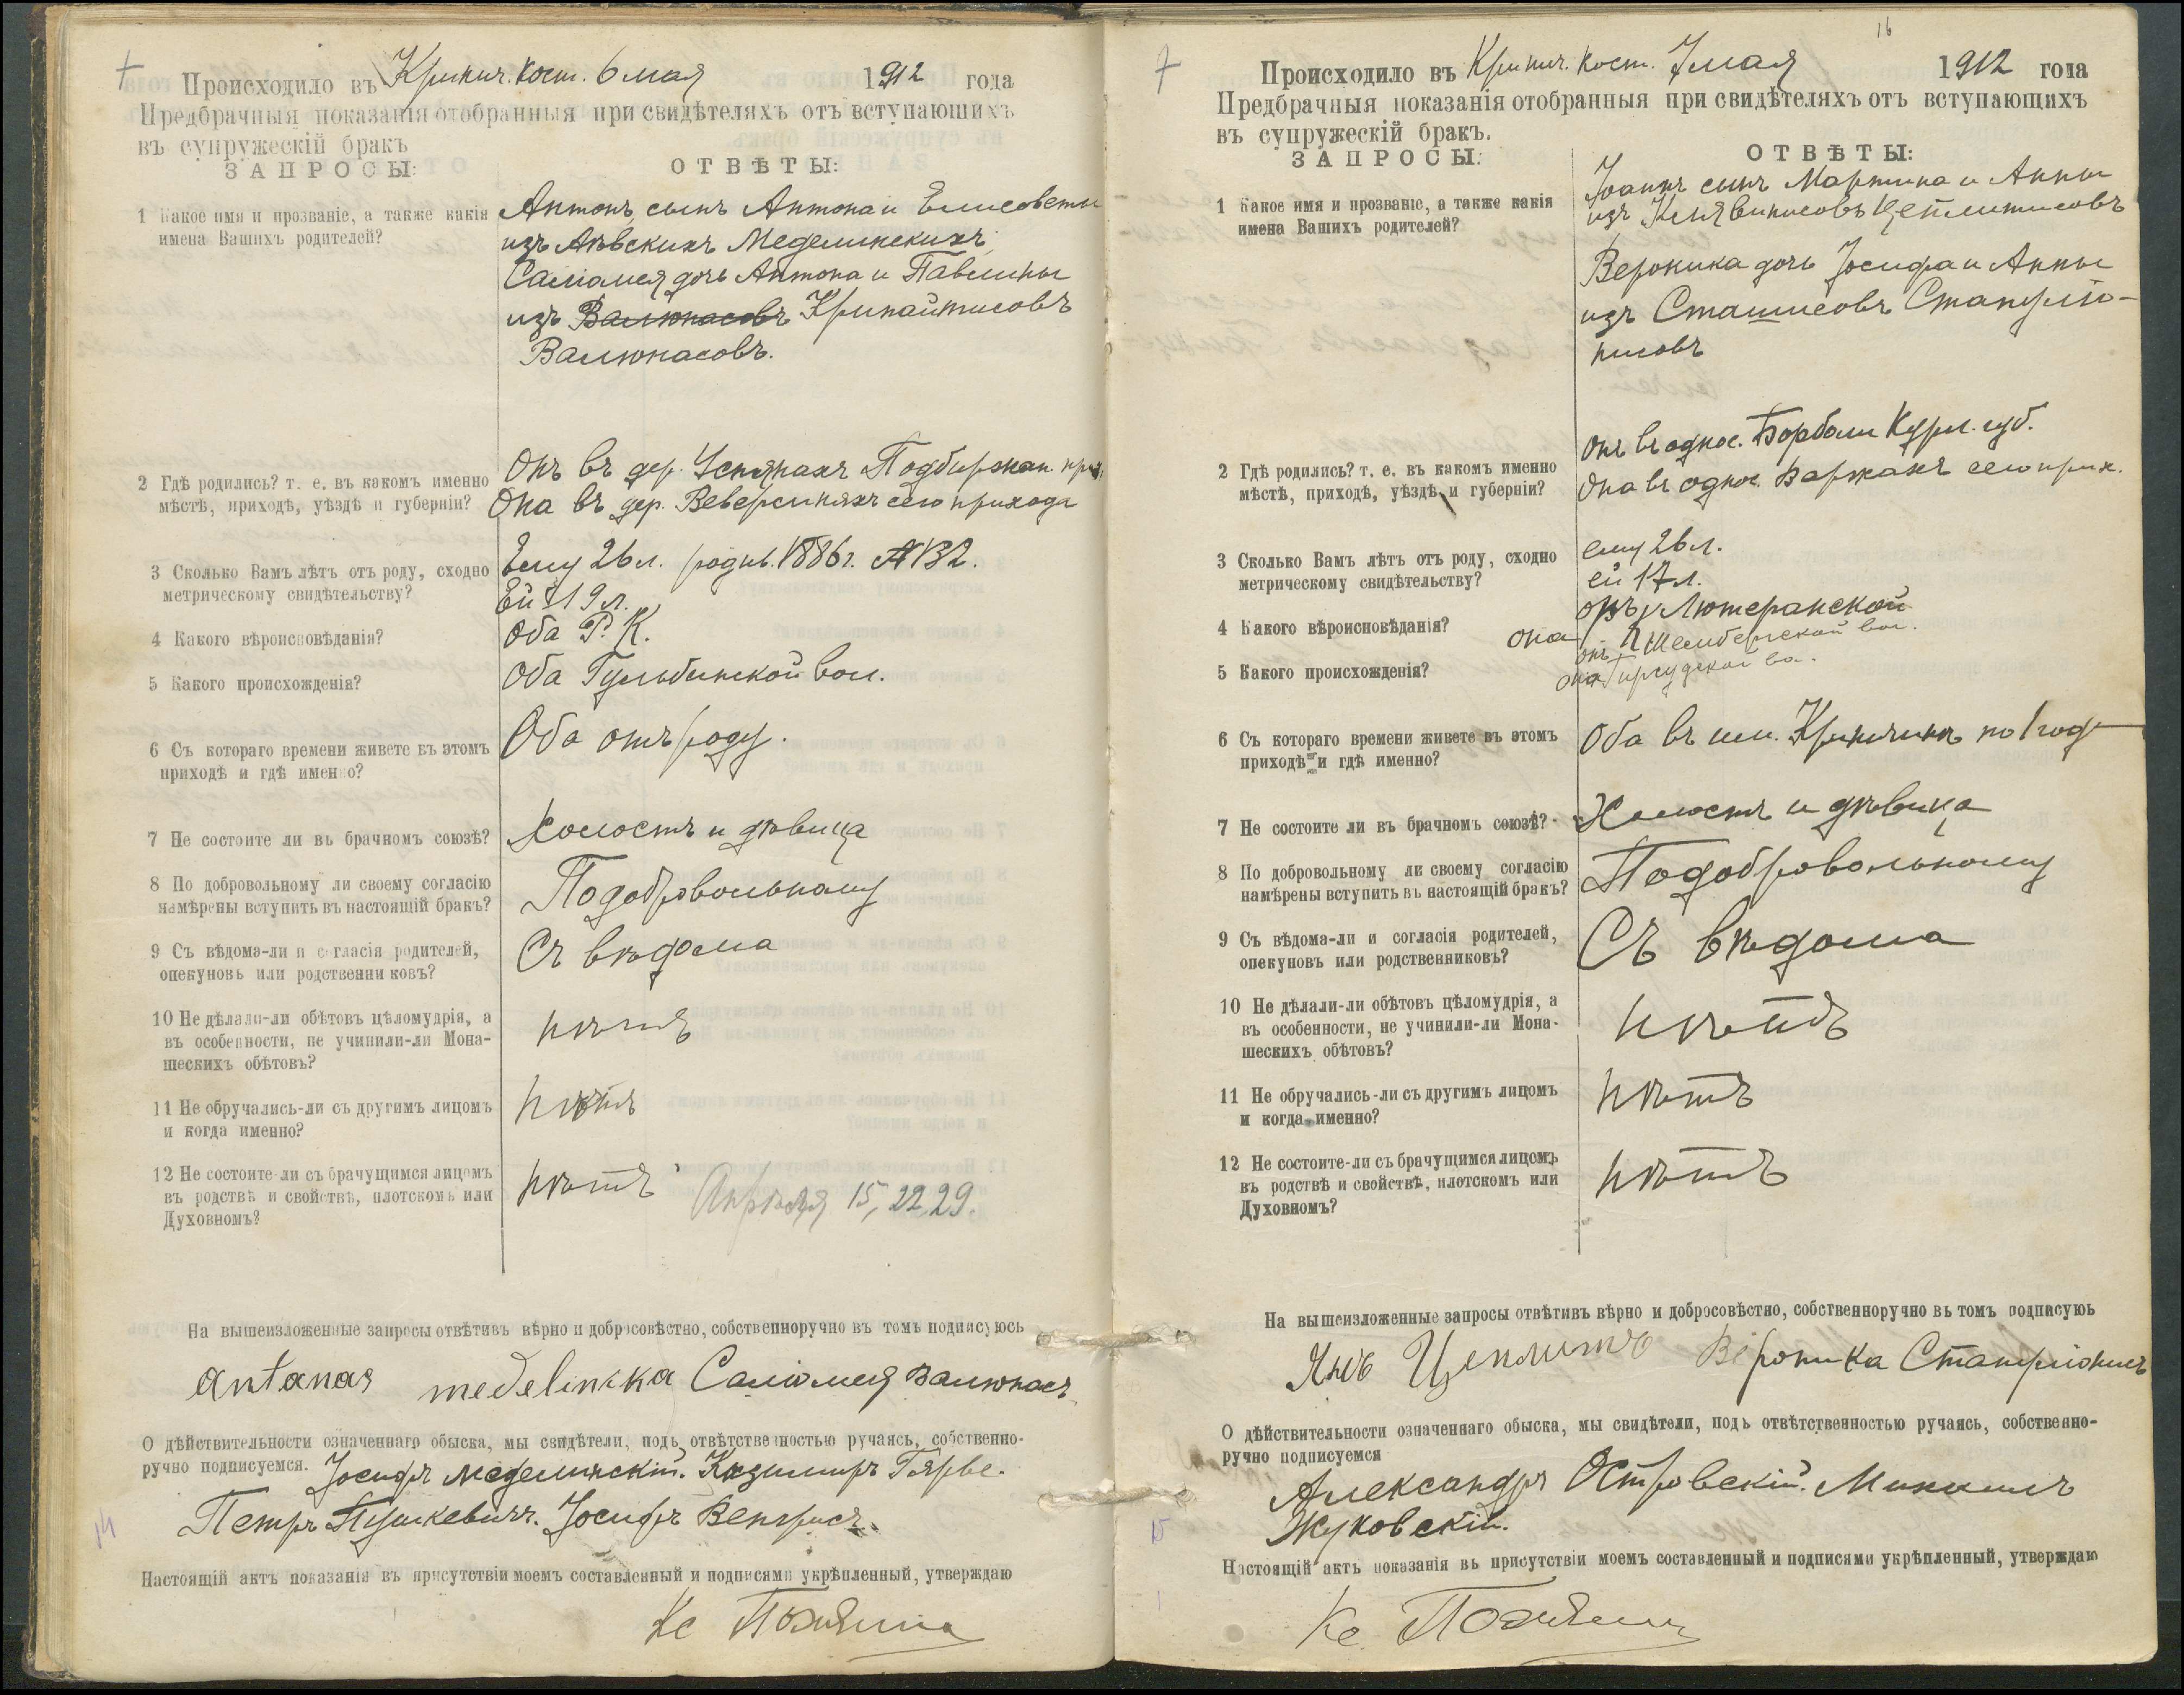 Происходило въ Кринич. кост. 6 мая 1912 года
Предбрачныя показанія отобранныя при свидѣтеляхъ отъ вступающихъ
въ супружескій бракъ
ЗАПРОСЫ: ОТВѢТЫ:
1 Какое имя и прозваніе, а также какія
имена Вашихъ родителей?
Антонъ сынъ Антона и Елисоветы
изъ Меделинскихъ
Саломея дочь Антона и Павлины
изъ Валюнасовъ Кринайтисовъ
Валюнасовъ.
2 Гдѣ родились? т. е. въ какомъ именно
мѣстѣ, приходѣ, уѣздѣ и губерніи?
Онъ въ дер. Устянахъ Подбиржан. прих.
Она въ дер. Веверсиняхъ сего прихода
3 Сколько Вамъ лѣтъ отъ роду, сходно
метрическому свидѣтельству?
Ему 26 л. родив. 1886 г. №132.
Ей 19 л.
4 Какого вѣроисповѣданія?
Оба Р. К.
5 Какого происхожденія?
Оба Гульбинской вол.
6 Съ котораго времени живете въ этомъ
приходѣ и гдѣ именно?
Оба отъ роду.
7 Не состоите ли въ брачномъ союзѣ?
Холостъ и дѣвица
8 По добровольному ли своему согласію
намѣрены вступить въ настоящій бракъ?
По добровольному
9 Съ вѣдома-ли и согласія родителей,
опекуновъ или родственниковъ?
Съ вѣдома
10 Не дѣлали-ли обѣтовъ цѣломудрія, а
въ особенности, не учинили-ли Мона-
шескихъ обѣтовъ?
нѣтъ
11 Не обручались-ли съ другимъ лицомъ
и когда именно?
нѣтъ
12 Не состоите-ли съ брачущимся лицомъ
въ родствѣ и свойствѣ, плотскомъ или
Духовномъ?
нѣтъ Апрѣля 15, 22, 29.
На вышеизложенные запросы отвѣтивъ вѣрно и добросовѣстно, собственноручно въ томъ подписуюсь
antanas medelinska Саломея Валюнасъ
О дѣйствительности означеннаго обыска, мы свидѣтели, подъ отвѣтственностью ручаясь, собственно-
ручно подписуемся. Іосифъ Меделинскій. Казимиръ Гярве.
Петръ Пушкевичъ. Іосифъ Венгрисъ.
14
Настоящій актъ показанія въ присутствіи моемъ составленный и подписями укрѣпленный, утверждаю
Кс
16
Происходило въ Кринич. кост. 7 мая 1912 года
Предбрачныя показанія отобранныя при свидѣтеляхъ отъ вступающихъ
въ супружескій бракъ.
ЗАПРОСЫ: ОТВѢТЫ:
1 Какое имя и прозваніе, а также какія
имена Вашихъ родителей?
Іоаннъ сынъ Мартина и Анны
изъ Цеплитисовъ
Вероника дочь Іосифа и Анны
изъ Сташисовъ Станулю-
нисовъ
2 Гдѣ родились? т. е. въ какомъ именно
мѣстѣ, приходѣ, уѣздѣ и губерніи?
Онъ въ однос. Борболи Курл. губ.
Она въ однос. Варжахъ сего прих.
3 Сколько Вамъ лѣтъ отъ роду, сходно
метрическому свидѣтельству?
ему 26 л.
ей 17 л.
4 Какого вѣроисповѣданія?
онъ Лютеранской
она
5 Какого происхожденія?
онъ вол.
она
6 Съ котораго времени живете въ этомъ
приходѣ и гдѣ именно?
Оба въ им. Криничинъ по 1 году
7 Не состоите ли въ брачномъ союзѣ?
Холостъ и дѣвица
8 По добровольному ли своему согласію
намѣрены вступить въ настоящій бракъ?
По добровольному
9 Съ вѣдома-ли и согласія родителей,
опекуновъ или родственниковъ?
Съ вѣдома
10 Не дѣлали-ли обѣтовъ цѣломудрія, а
въ особенности, не учинили-ли Мона-
шескихъ обѣтовъ?
нѣтъ
11 Не обручались-ли съ другимъ лицомъ
и когда именно?
нѣтъ
12 Не состоите-ли съ брачущимся лицомъ
въ родствѣ и свойствѣ, плотскомъ или
Духовномъ?
нѣтъ
На вышеизложенные запросы отвѣтивъ вѣрно и добросовѣстно, собственноручно въ томъ подписуюь
Янъ Цеплитъ Вероника Станулюнисъ
О дѣйствительности означеннаго обыска, мы свидѣтели, подъ отвѣтственностью ручаясь, собственно-
ручно подписуемся
Александръ Островскій. Михаилъ
Жуковскій.
15
Настоящій актъ показанія въ присутствіи моемъ составленный и подписями укрѣпленный, утверждаю
Кс.